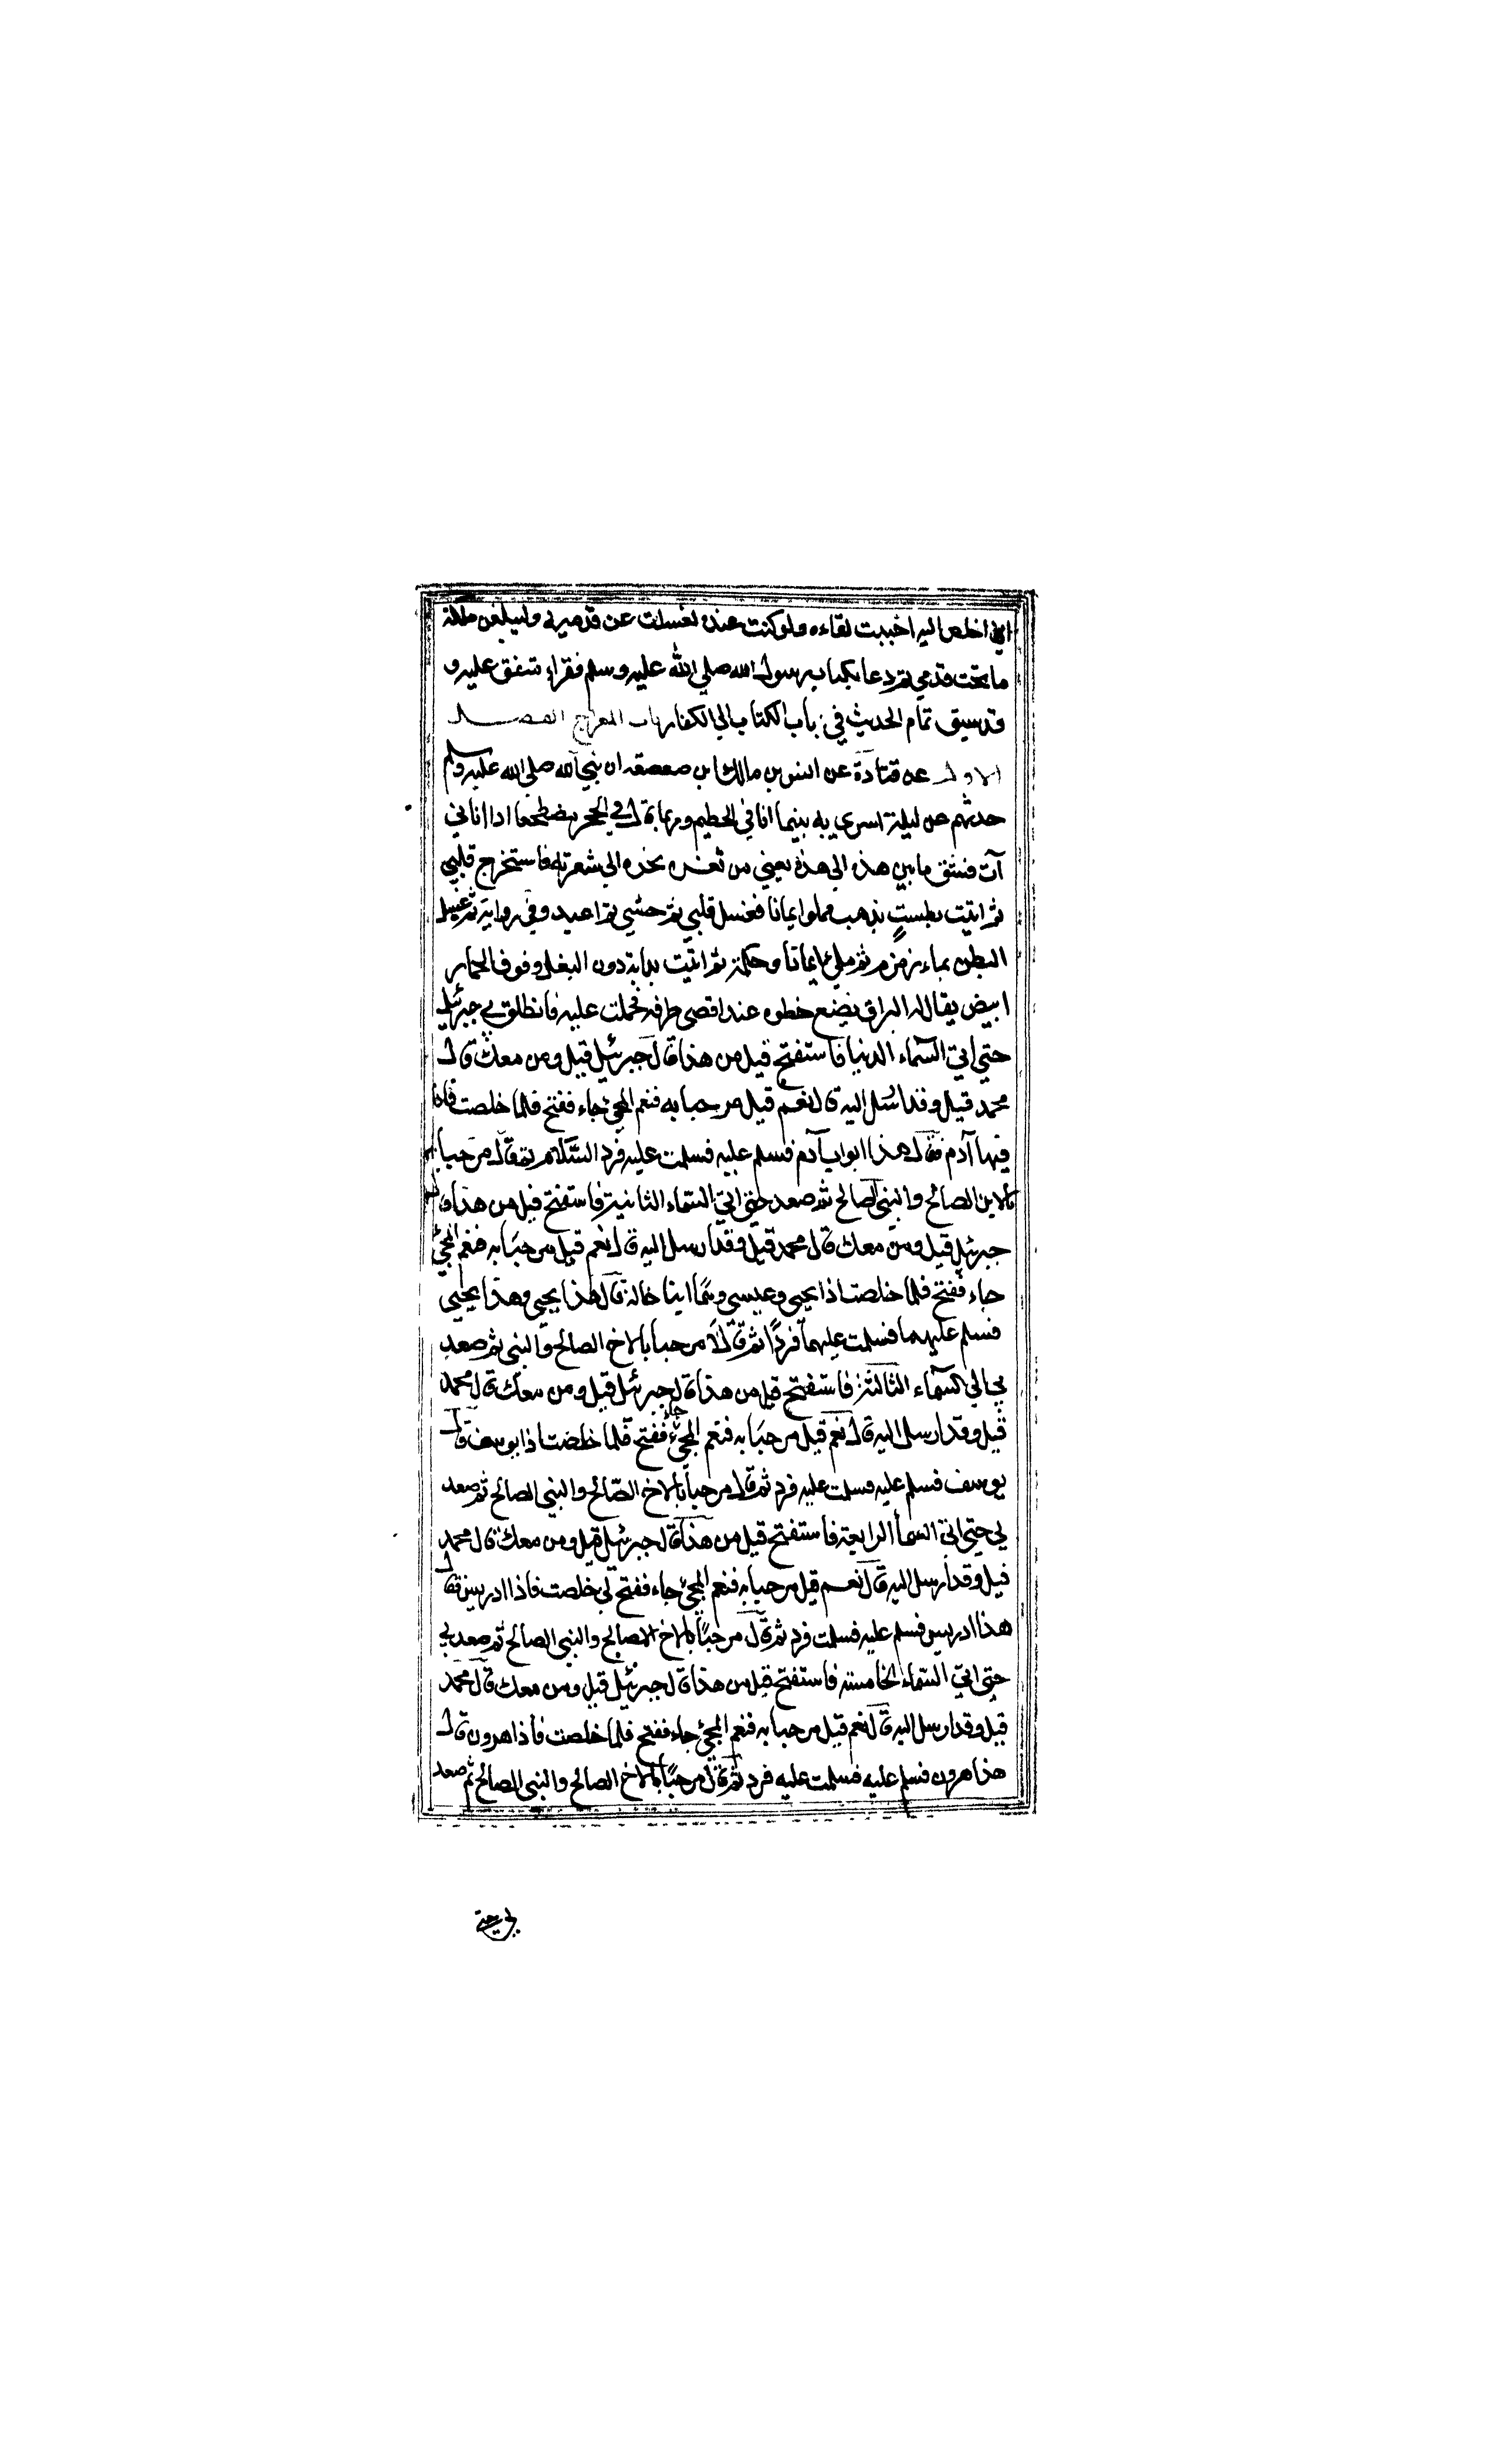 اني اخلص اليه احببت لقاءه ولو كنت عنده لغسلت عن قدميه وليبلغن ملكه
ما تحت قدمي ثم دعا بكتاب رسول الله صلي الله عليه وسلم فقراه متفق عليه و
قد سبق تمام الحديث في باب الكتاب الي الكفار باب المعراج الفصل
الاول عن قتادة عن انس بن مالك بن صعصعه ان نبي الله صلي الله عليه وسلم
حدثهم عن ليلة اسري به بينما انا في الحطيم وربما قال في الحجر مضطجعا اذا اتاني
آت فشق ما بين هذه الي هذه يعني من ثغره نحره الي شعرته فاستخرج قلبي
ثم اتيت بطست بذهب مملوا يمانا فغسل قلبي ثم حشي ثم اعيد وفي رواية ثم غسل
البطن بماء زمزم ثم ملئ ايمانا وحكمة ثم اتيت بدابة دون البغل وفوق الحمار
ابيض يقال له البراق يضع خطوه عند اقصي طرفه فحملت عليه فانطلق بي جبرئيل
حتي اتي السماء الدنيا فاستفتح قيل من هذا قال جبرئيل قيل ومن معك قال
محمد قيل وقد ارسل اليه قال نعم قيل مرحبا به فنعم المجئ جاء ففتح فلما خلصت فاذا
فيها آدم فقال هذا ابوك آدم فسلم عليه فسلمت عليه فرد السلام ثم قال مرحبا
بالابن الصالح والنبي الصالح ثم صعد حتي اتي السماء الثانية فاستفتح قيل من هذا قال
جبرئيل قيل ومن معك قال محمد قيل وقد ارسل اليه قال نعم قيل مرحبا به فنعم المجئ
جاء ففتح فلما خلصت اذا يحيي وعيسي وهما ابنا خالة قال هذا يحيي وهذا يحيي
فسلم عليهما فسلمت عليهما فردا ثم قالا مرحبا بالاخ الصالح والنبي ثم صعد
بي الي السماء الثالثة فاستفتح قيل من هذا قال جبرئيل قيل ومن معك قال محمد
قيل وقد ارسل اليه قال نعم قيل مرحبا به فنعم المجئ جاء ففتح فلما خلصت اذا يوسف قال
يوسف فسلم عليه فسلمت عليه فرد ثم قال مرحبا بالاخ الصالح والنبي الصالح ثم صعد
بي حتي اتي السماء الرابعة فاستفتح قيل من هذا قال جبرئيل قيل ومن معك قال محمد
قيل وقد ارسل اليه قال نعم قيل مرحبا به فنعم المجئ جاء ففتح لي خلصت فاذا ادريس فقال
هذا ادريس فسلم عليه فسلمت فرد ثم قال مرحبا بالاخ الصالح والنبي الصالح ثم صعد بي
حتي اتي السماء الخامسه فاستفتح قيل من هذا قال جبرئيل قيل ومن معك قال محمد
قيل وقد ارسل اليه قال نعم قيل مرحبا به فنعم المجئ جاء ففتح فلما خلصت فاذا هرون قال
هذا هرون فسلم عليه فسلمت عليه فرد ثم قال مرحبا بالاخ الصالح والنبي الصالح ثم صعد
بي حتي